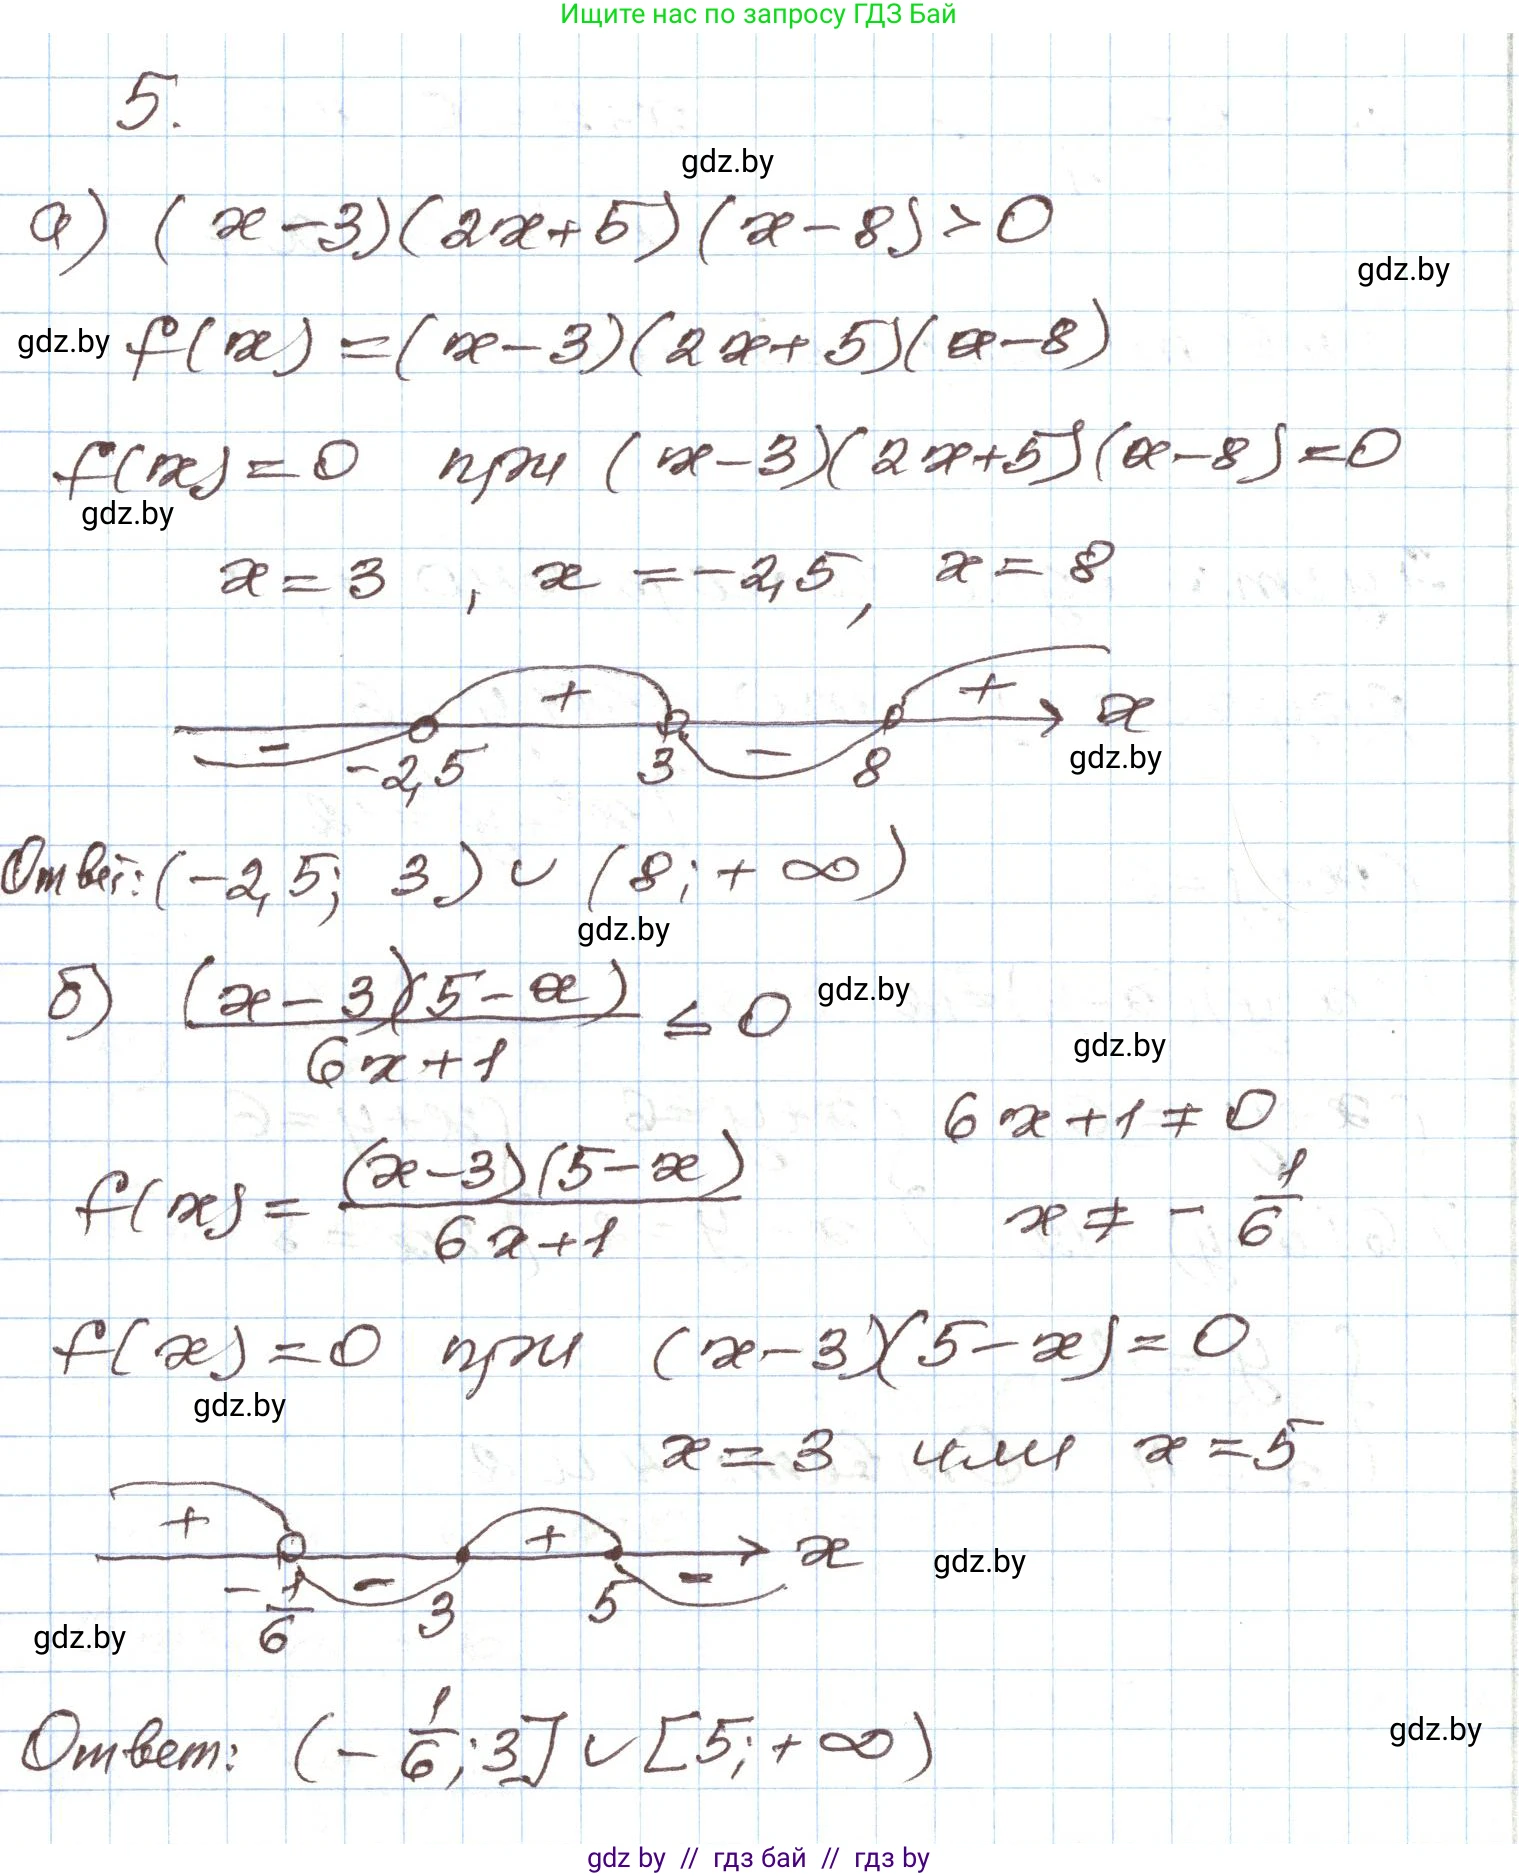 Ищите нас по запросу ГДЗ Бай
5.
gdz.by
а) (x-3)(2x+5)(x-8)>0
gdz.by
gdz.by f(x)=(x-3)(2x+5)(x-8)
f(x)=0 при (x-3)(2x+5)(x-8)=0
gdz.by
x=3, x=-2,5, x=8
+ + x
- - 
-2,5 3 8 gdz.by
Ответ: (-2,5; 3) ∪ (8; +∞)
gdz.by
б) (x-3)(5-x)/(6x+1) ≤ 0 gdz.by
gdz.by
6x+1≠0
f(x) = (x-3)(5-x)/(6x+1)
x≠-1/6
f(x)=0 при (x-3)(5-x)=0
gdz.by
x=3 или x=5
+ + x gdz.by
- -
-1/6 3 5
gdz.by
gdz.by
Ответ: (-1/6; 3] ∪ [5; +∞)
gdz by // гдз бай // гдз by